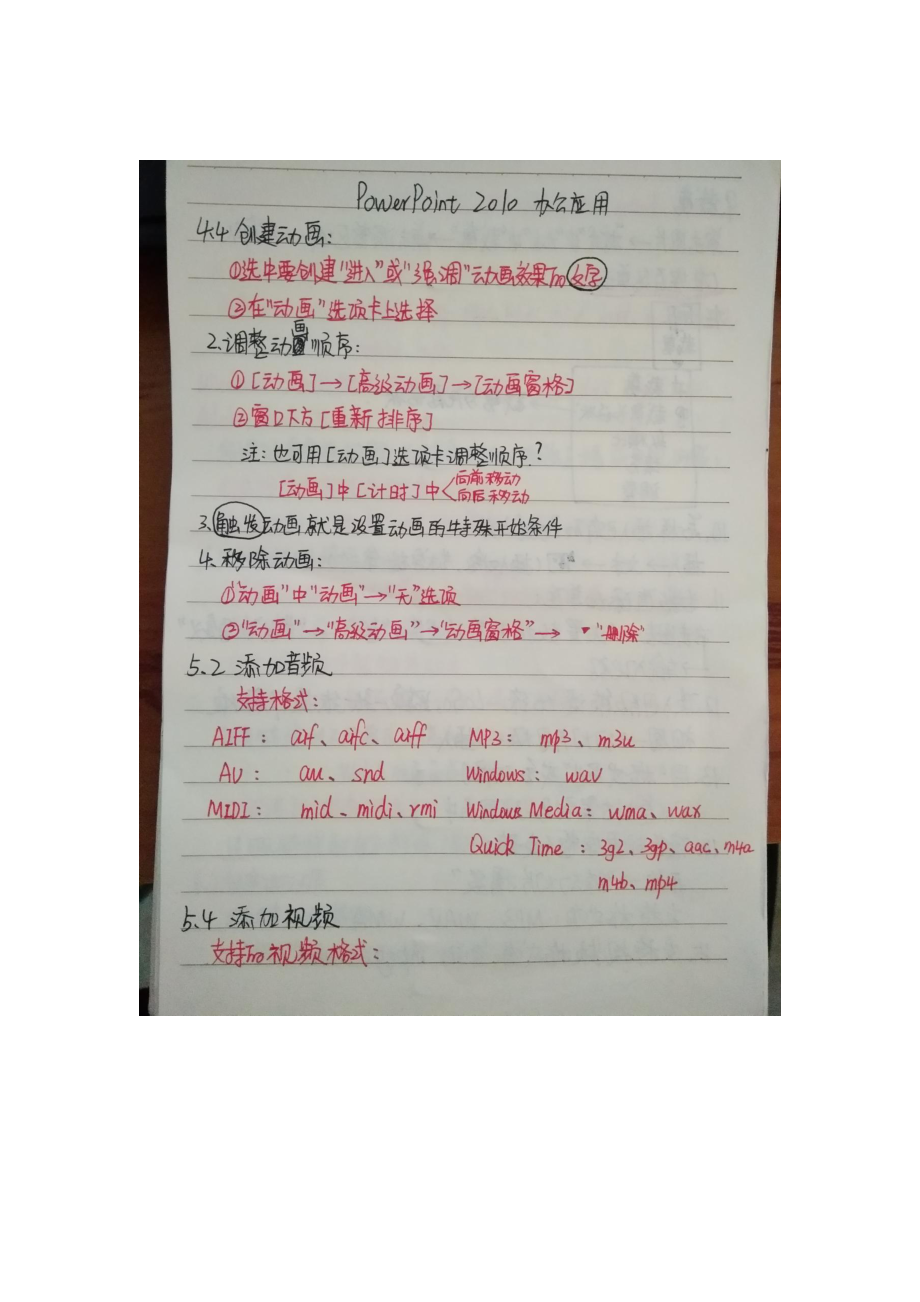 PowerPoint 2010 办公应用
4.4 创建动画：
①选中要创建“进入”或“强调”动画效果的文字
②在“动画”选项卡上选择
2.调整动画顺序：
①[动画]→[高级动画]→[动画窗格]
②窗口下方[重新排序]
注：也可用[动画]选项卡调整顺序？
[动画]中[计时]中 向前移动
向后移动
3.触发动画就是设置动画的特殊开始条件
4.移除动画：
①“动画”中“动画”→“无”选项
②“动画”→“高级动画”→“动画窗格”→ ▾“删除”
5.2 添加音频
支持格式：
AIFF： aif、aifc、aiff MP3： mp3、m3u
AU： au、snd Windows： wav
MIDI： mid、midi、rmi Windows Media： wma、wax
Quick Time ：3g2、3gp、aac、m4a
m4b、mp4
5.4 添加视频
支持的视频格式：